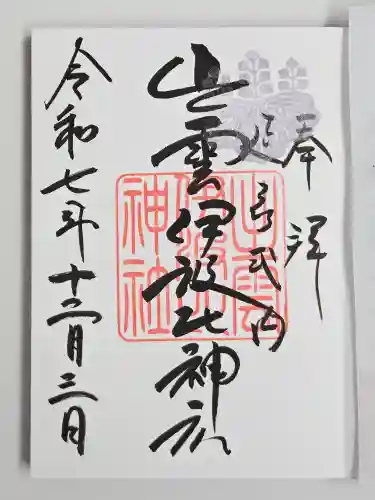 奉拝
延喜式内
出雲伊波比神社
出雲
伊波比
神社
令和七年十二月三日